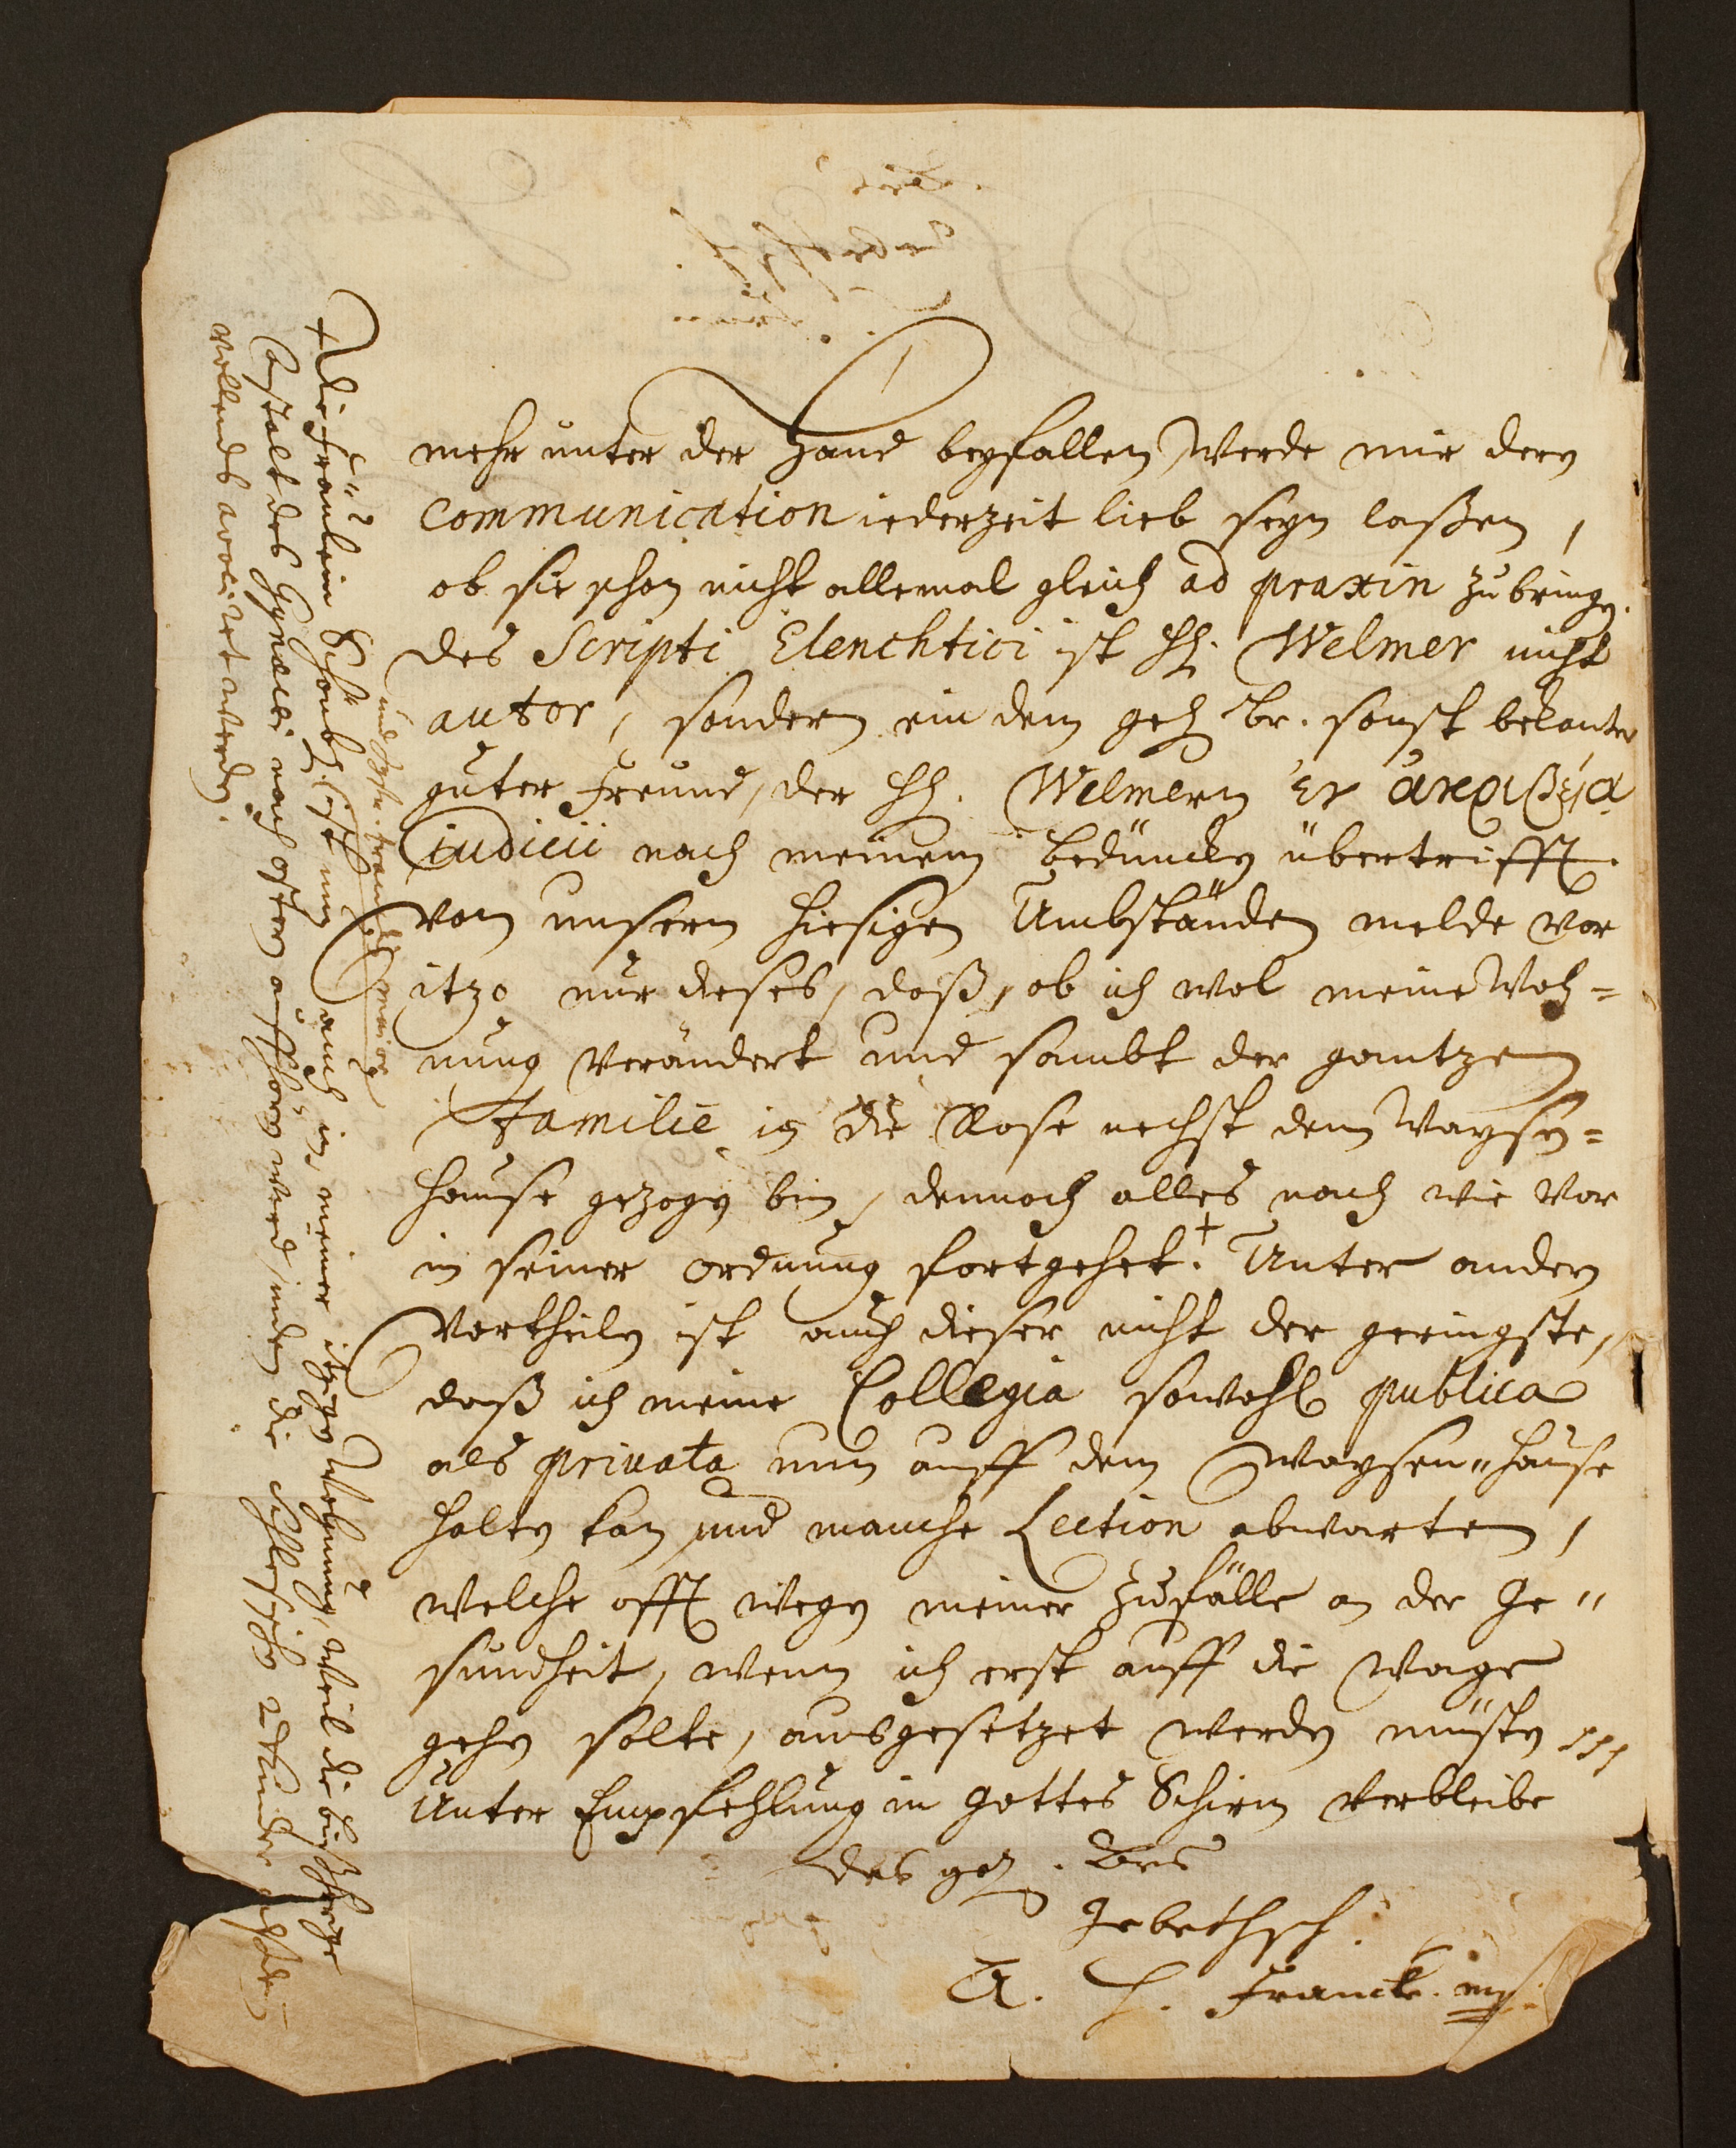 mehr unter der Hand beyfallen, werde mir dero
communication iederzeit lieb seyn laßen,
ob sie schon nicht allemal gleich ad praxin zu bringen.
des Scripti Elenchtici ist H. Welmer nicht
autor, sondern ein dem gel. Br. sonst bekanter
guter Freund, der H. Welmern in ἀκριβείᾳ
iudicii nach meinem bedüncken übertrifft.
von unsern hiesigen Umbständen melde vor
itzo nur dieses, daß, ob ich wol meine Woh=
nung verändert und sambt der gantzen
Familie in die Rose nechst dem Waysen=
hause gezogen bin, dennoch alles nach wie vor
in seiner ordnung fortgehet.+ Unter andern
Vortheilen ist auch dieser nicht der geringste,
daß ich meine Collegia sowohl publica
als privata nun auff dem Waysen=hause
halten kan, und manche Lection abwarten,
welche offt wegen meiner Zufälle an der Ge=
sundheit, wenn ich erst auff die Wage
gehen solte, ausgesetzet werden müsten
Unter Empfehlung in Gottes Schirm verbleibe
des gel. Brs
Gebethsch.
A. H. Francke. mp.
und Jgfr.
+ die Fräulein Schönb. ist nun auch in meiner itzigen Wohnung, weil die bißherige
Anstalt des Gynaecei nach ostern auffhören wird, indem die Schlesischen Kinder
vollends avociret werden.